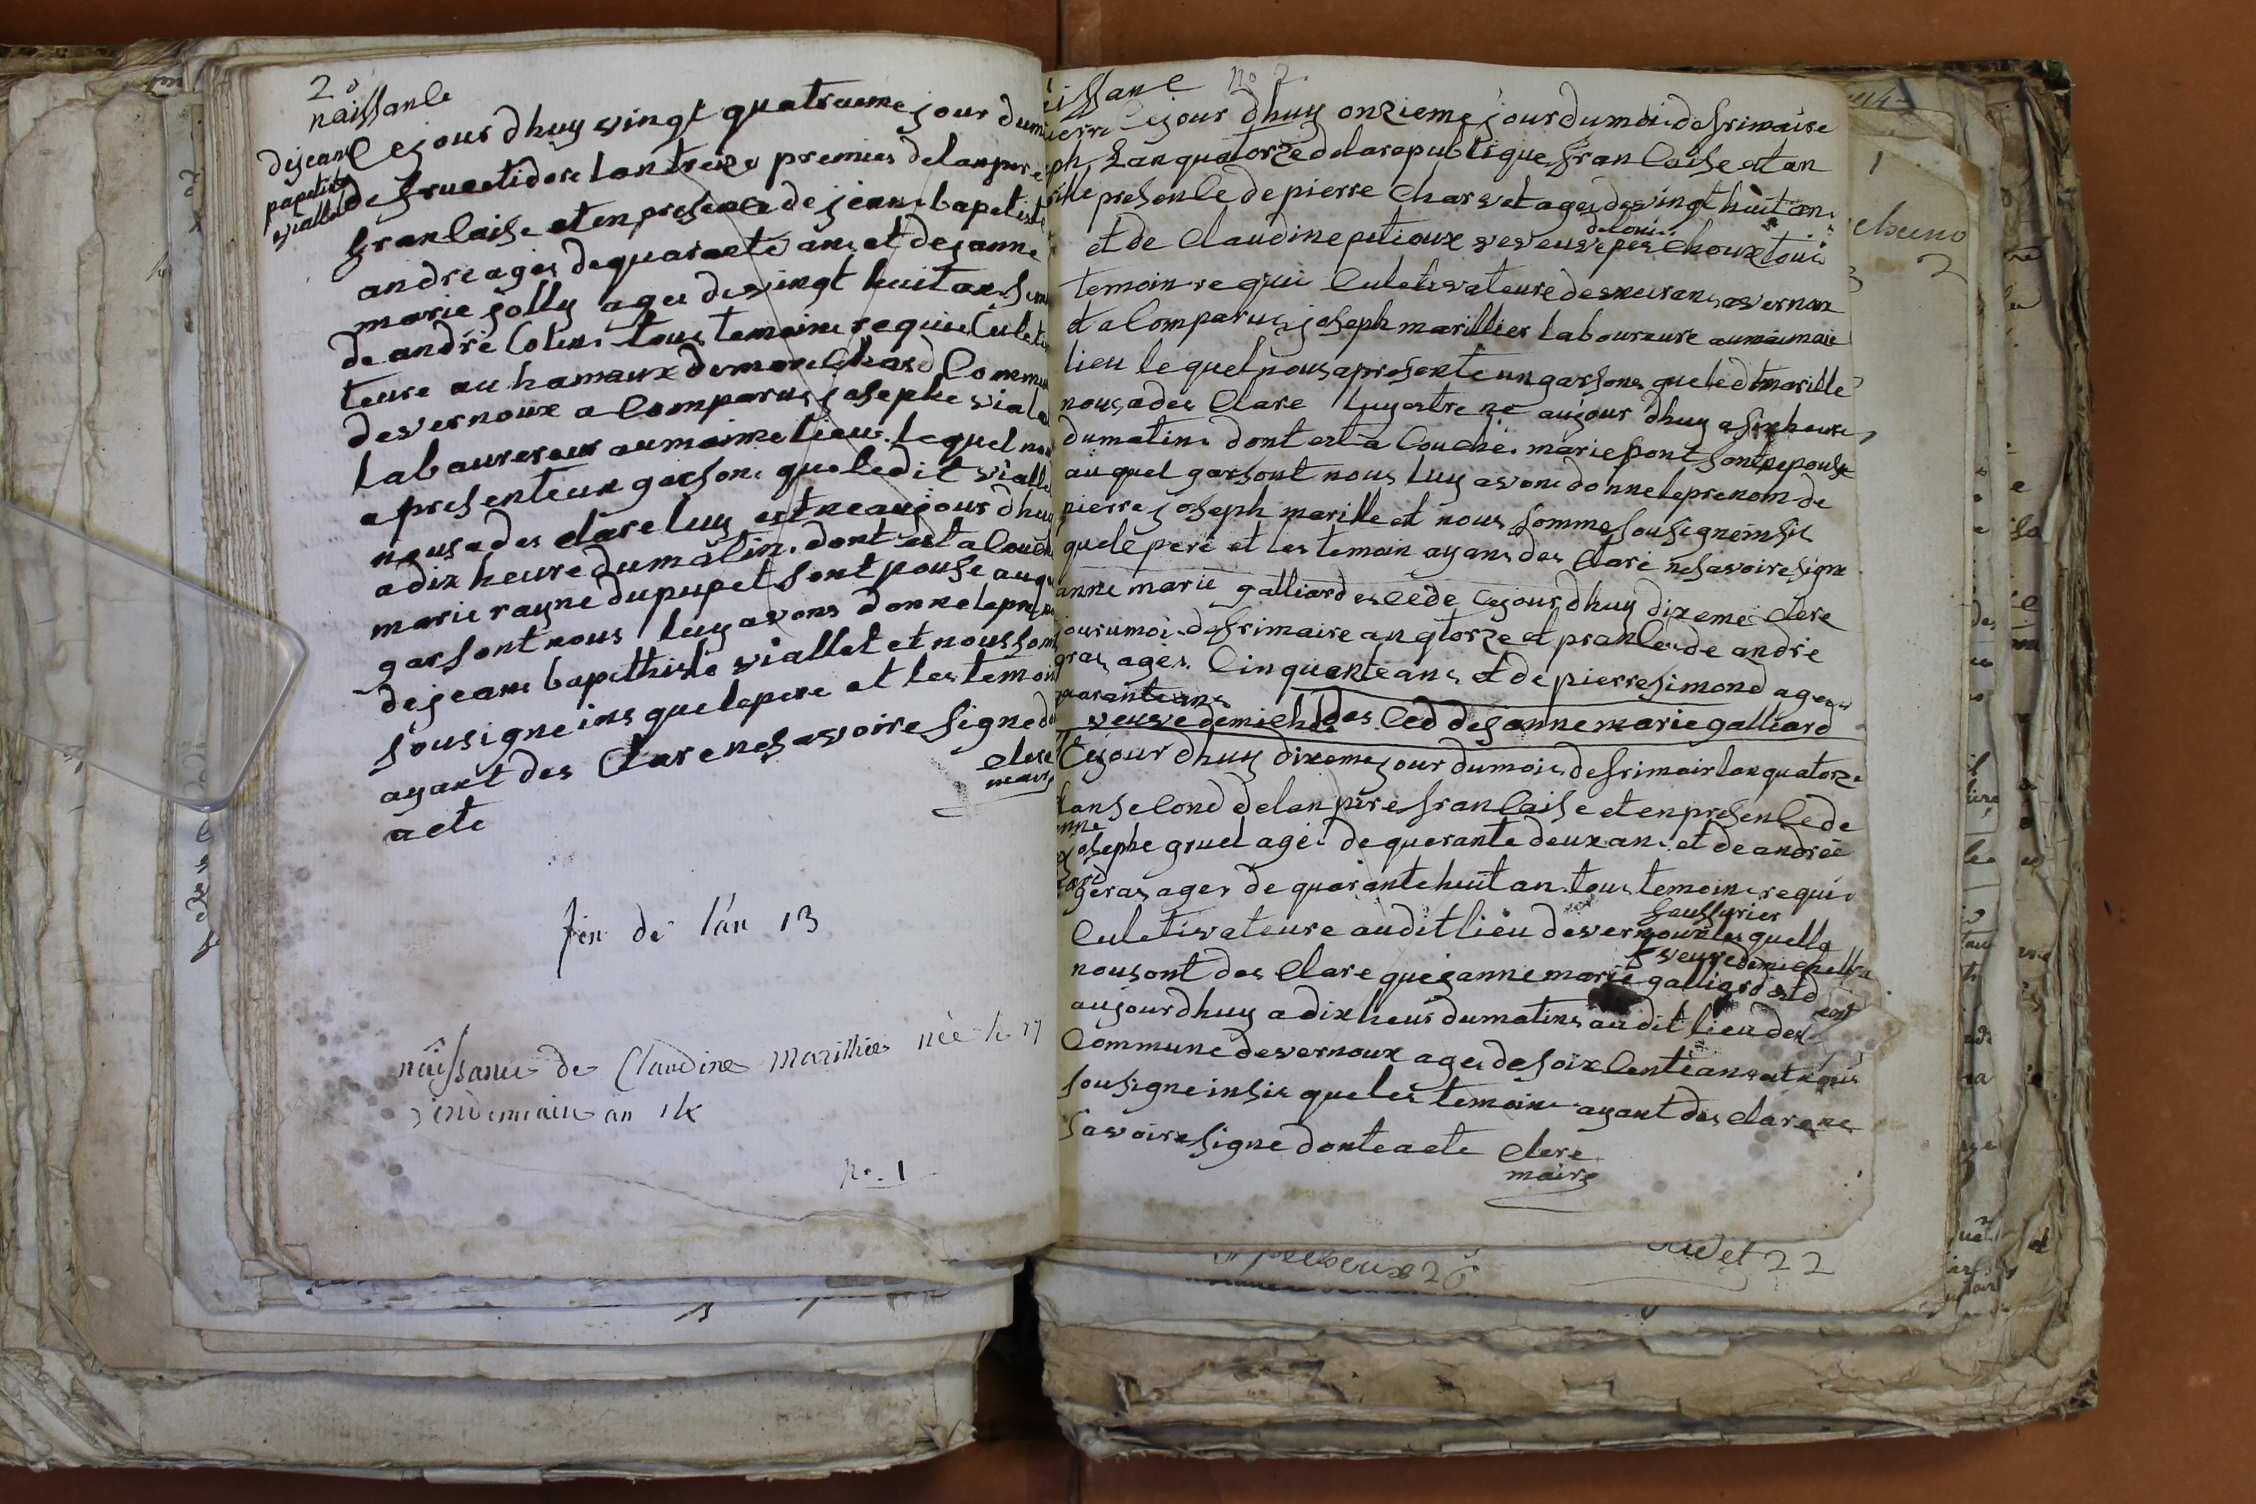 20
naissanle
dejeane
papetiste
viallet
Cejour dhuy vingt quatrieme jour dum
de fructidore lantreize premier delanpire
franlaise et en presence de jeanne bapetiste
andre ages dequaraete ans et dejanne
marie jolly ages devingt huit ans fem
de andre Colin tous temoins requis Culeti
teure au hamaux demonchard Commun
devernoux a Comparus josephe viale
labaurereur aumaime lieu lequel nou
apresenteun garsone queledit vialle
nousades clareluy estneaujour dhuy
adix heure dumatin dont esta louche
marie rayne dupupet sont pouse auqu
garsont nous luy avons donneleprenom
dejeane bapethiste viallet et nous som
sousigneins quelepere et les temoin
ayant des Clare nesavoire signe do
acte
clere
maire
fin de l'an 13
naissance de Claudine Marillier née le 17
vendemiaire an 14
no. 1
issanl no 2.
ierre
eph
rille
Cejour dhuy onzieme jour dumoi defrimaire
Lanquatorze delarepublique franlaise et an
presenle depierre Charvet ages devingt huit an
delouis
et de Claudine petioux veveuve per Choux touis
temoin requi Culetivateure deneurans avernon
et aComparus joseph marillier laboureure aumaimaie
lieu le quel nous apresente un garsone queledt marille
nousades Clare luyestre ne aujour dhuy asixheure
dumatin dont esta Couche marie pont sont epouse
auquel garsont nous luy avons donneleprenom de
pierre joseph marille et nous somme sousigneinsis
quele pere et les temoin ayans des Clare nesavoiresigne
anne marie galliard deslede Cejour dhuy dixeme Clere
jourumoi defrimaire anqtorze et pranle de andre
gras ages Cinquante ans et de pierre simond ages
quarante ans
veuve demichel des Led dejannemarie galliard
Cejour dhuy dixeme jour dumois defrimair lanquatorze
lanselond delanpire franlaise et enpresenle de
josephe gruel age de querante deux an et de andree
geras ages de quarante huit an tous temoin requi
Culetivateure auditlieu devernoux les quelle
saussurier
veuve demichelle
nousont des Clare quejannemarie galliard est d
aujourdhuy adix heur dumatins audit lieu des
Commune devernoux ages desoixlente ans et nous
sousigneinsis queles temoin ayant des clarene
savoire signe donteacte
clere
maire
22